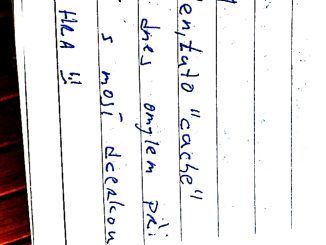 en, tuto "cache"
dnes omylem při
s mojí dcerkou
HRA !!!